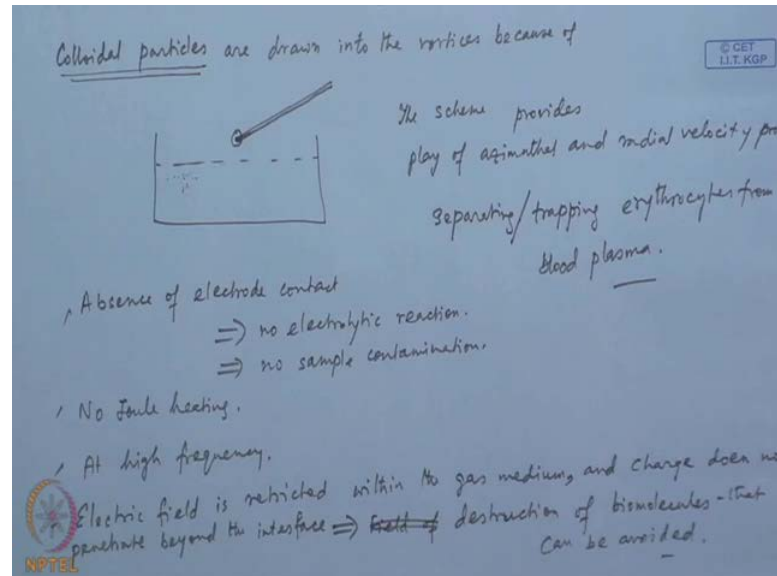 Colloidal particles are drawn into the vortices because of
© CET
I.I.T. KGP
The scheme provides
play of azimuthal and radial velocity pro
separating/trapping erythrocytes from
blood plasma.
Absence of electrode contact
⇒ no electrolytic reaction.
⇒ no sample contamination.
No Joule heating.
At high frequency.
Electric field is retricted within the gas medium, and charge does no
penetrate beyond the interface ⇒ destruction of biomolecules - that
can be avoided.
NPTEL